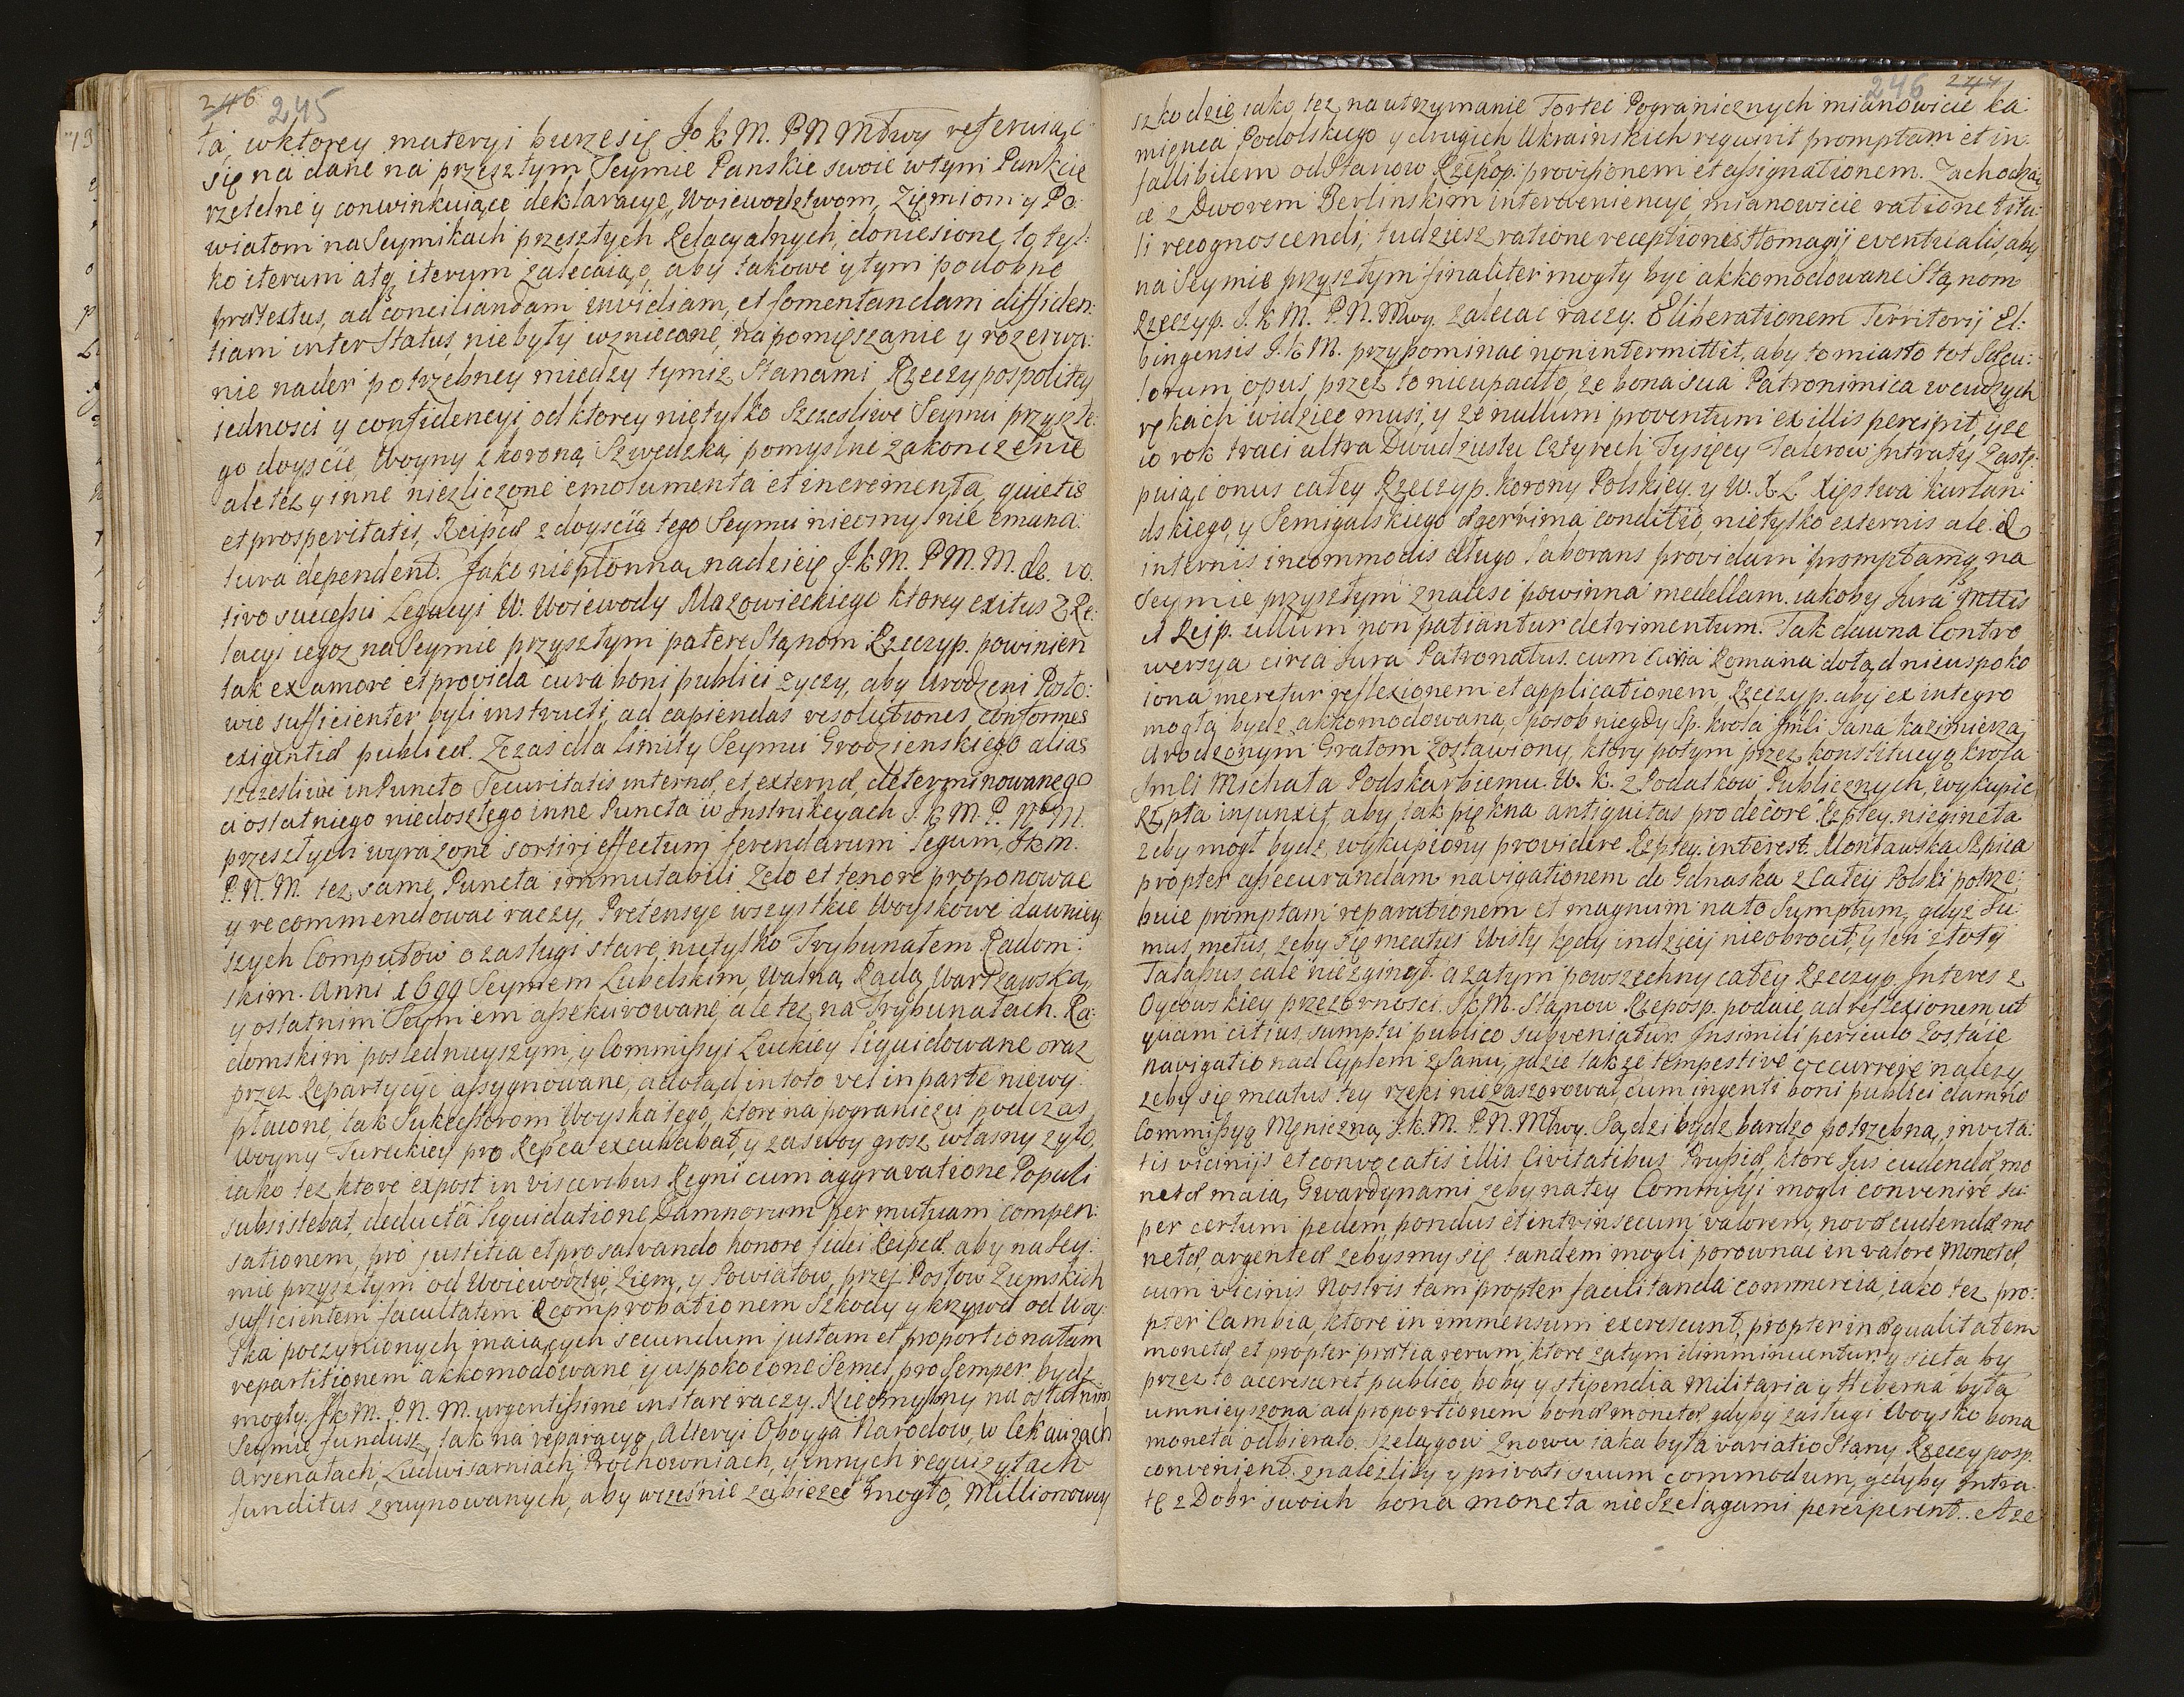 246 245
tá, wktorey materyi burzesię Jo k M. P N Mtwy referuiąc
się na dane na przeszłym Seymie Panskie swoie wtym Punkcie
rzetelne y conwinkuiące deklaracye, Woiewodztwom, Zięmiom y Po:
wiatom na Seymikach przeszłych Relacyalnych, doniesione, to tyl:
ko iterum atq iterum zalecaiąc, aby takowe y tym podobne
prætextus, ad conciliandam invidiam, et fomentandam diffiden:
tiam inter Status, niebyły wzniecone, na pomięszanie y rozerwa:
nie nader potrzebney między tymiz Stanami Rzeczypospolitey
iednosci y confidencyi, od ktorey nietylko Szczesliwe Seymu przyszłe:
go doyscie, Woyny z koroną Szwedzką, pomyslne zakonczenie
ale tez y inne niezliczone emolumenta et incrementa, quietis
et prosperitatis, Reipcæ z doyscia tego Seymu nieomylnie emana:
tura dependent. Jako niepłonną nadzieię J. k M. P M. M. de vo:
tivo successu Legacyi W. Woiewody Mazowieckiego ktorey exitus z Re:
lacyi iegoz na Seymie przyszłym patere Stanom Rzeczyp. powinien
tak ex amore et provida cura boni publici zyczy, aby Urodzeni Posło:
wie sufficienter byli instructi, ad capiendas resolutiones, conformes
exigentiæ publicæ. Ze zas dla limity Seymu Grodzienskiego alias
szczesliwie in Puncto Securitatis internæ, et externæ, determinowanego
a ostatniego niedoszłego inne Puncta w Instrukcyach J. k M. P. N M.
przeszłych wyrazone sortiri effectum ferendarum legum, Jkm.
P. N. M. tez same Puncta immutabili Zelo et tenore proponowac
y recommendowac raczy, Pretensye wszystkie Woyskowe dawniey
szych Computow o zasługi stare, nietylko Trybunałem Radom:
skim. Anni 1699 Seymem Lubelskim, Walną Radą Warszawską,
y ostatnim Seymem assekurowane, ale tez na Trybunałach. Ra:
domskim poslednieyszym, y Commissyi Luckiey liquidowane oraz
przez Repartycye assygnowane, a dotąd in toto vel in parte niewy:
płacone, tak Sukcessorom Woyska tego, ktore na pograniczu podczas
Woyny Tureckiey pro Repca excubabat, y za swoy grosz własny zyło,
iako tez ktore expost in visceribus Regni cum aggravatione Populi
subsistebat, deducta liquidatione Damnorum per mutuam compen:
sationem, pro justitia et pro salvando honore fidei Reipcæ. aby na Sey:
mie przyszłym od Woiewodztw, Ziem, y Powiatow, przez Posłow Ziemskich
sufficientem facultatem & comprobationem Szkody y krzywd od Woy:
ska poczynionych maiących secundum justam et proportionatam
repartitionem akkomodowane y uspokoione Semel pro Semper bydz
mogły. Jk M. P. N. M. urgentissime instare raczy. Nieomyslony na ostatnim
Seymie fundusz, tak na reparacyą, Alteryi Oboyga Narodow, w Cekauzach
Arsenałach, Ludwisarniach, Prochowniach, y innych requizytach
funditus zruynowanych, aby wcześnie zabiezec mogło, Millionowey
246 247
szkodzie iako tez na utrzymanie Fortec Pogranicznych mianowicie ka:
mienca Podolskiego y drugich Ukrainskich requirit promptam et in:
fallibilem od Stanow Rzepop. provisionem et assignationem. Zachodzą
ce z Dworem Berlinskim interveniencye, mianowicie ratione titu:
li recognoscendi, tudziesz ratione receptiones Homagij eventualis, aby
na Seymie przyszłym finaliter mogły być akkomodowane Stanom
Rzeczyp. J. k M. P. N. Mwy. zalecac raczy. Eliberationem Territorij El:
bingensis J. k M. przypominac non intermittit, aby to miasto tot Sæcu:
lorum, opus, przez to nieupadło, ze bona sua Patronimica w cudzych
rękach widziec musi, y ze nullum proventum ex illis percipit, y ze
co rok traci ultra Dwudziestu Cztyrech Tysięcy Talerow Intraty Zastę:
puiąc onus całey Rzeczyp. Korony Polskiey. y W. X L Xięstwa kurlan
dskiego, y Semigalskiego ægerrima conditio, nietylko externis ale &
internis incommodis długo laborans providam promptamq na
Seymie przyszłym znalesc powinna medellam. iakoby Jura Mttis
et Reip. ullum non patiantur detrimentum. Tak dawna Contro
wersya circa Jura Patronatus. cum Curia Romana dotąd nieuspoko
iona meretur reflexionem et applicationem, Rzeczyp. aby ex integro
mogła bydz akkomodowana, Sposob niegdy Sp. krola Jmsci Jana Kazimierza
Urodzonym Gratom zostawiony, ktory potym przez konstitucyą krola
Jmsci Michała Podskarbiemu. W. K. z Podatkow Publicznych, wykupic
Rzpta injunxit, aby tak piękna antiquitas pro decore Rzptey. nieginęła
zeby mogł bydz wykupiony providere Rzptey. interest. Montawska Szpica
propter assecurandam navigationem do Gdnaska z całey Polski potrze:
buie promptam reparationem et magnum na to Sumptum, gdyz su:
mus metus, zeby się meatus Wisły kędy indziey nieobrocił, y ten złoty
Talassus cale niezginął. a zatym powszechny całey Rzeczyp. Interes z
Oycowskiey przezorności. J. k M. Stanow Rzeposp. podaie ad reflexionem ut
quam citius, sumptu publico subveniatur. In simili periculo zostaie
navigatio nad Cyplem z Sanu, gdzie takze tempestive occurrere nalezy
zeby się meatus tey rzeki nie zaszorował, cum ingenti boni publici damno
Commissyą Męniczną, J. k. M. P. N. Mtwy. Sądzi bydz bardzo potrzebną, invita:
tis vicinijs et convocatis illis Civitatibus Prussiæ, ktore Jus cudendæ mo
netæ maią, Gwardynami zeby na tey Commissyi mogli convenire su:
per certum pedem, pondus et intrinsecum valorem, novæ cudendæ mo
netæ, argenteæ zebysmy się tandem mogli porownac in valore Monetæ,
cum vicinis Nostris tam propter facilitanda commercia, iako tez pro:
pter Cambia, ktore in immensum excrescunt, propter inæqualitatem
monetæ et propter prætia rerum, ktore zatym dimminuentur. y siła by
przez to accresceret publico, bo by y stipendia Militaria y Hiberna była
umnieyszona ad proportionem bonæ monetæ, gdyby zasługi Woysko bona
moneta odbierało. Szelągow znowu iaka była variatio Stany Rzeczyposp.
convenient. znalezliby y privati suum commodum, gdyby Intra:
tę z Dobr swoich bona moneta nie Szelągami perciperent. A ze